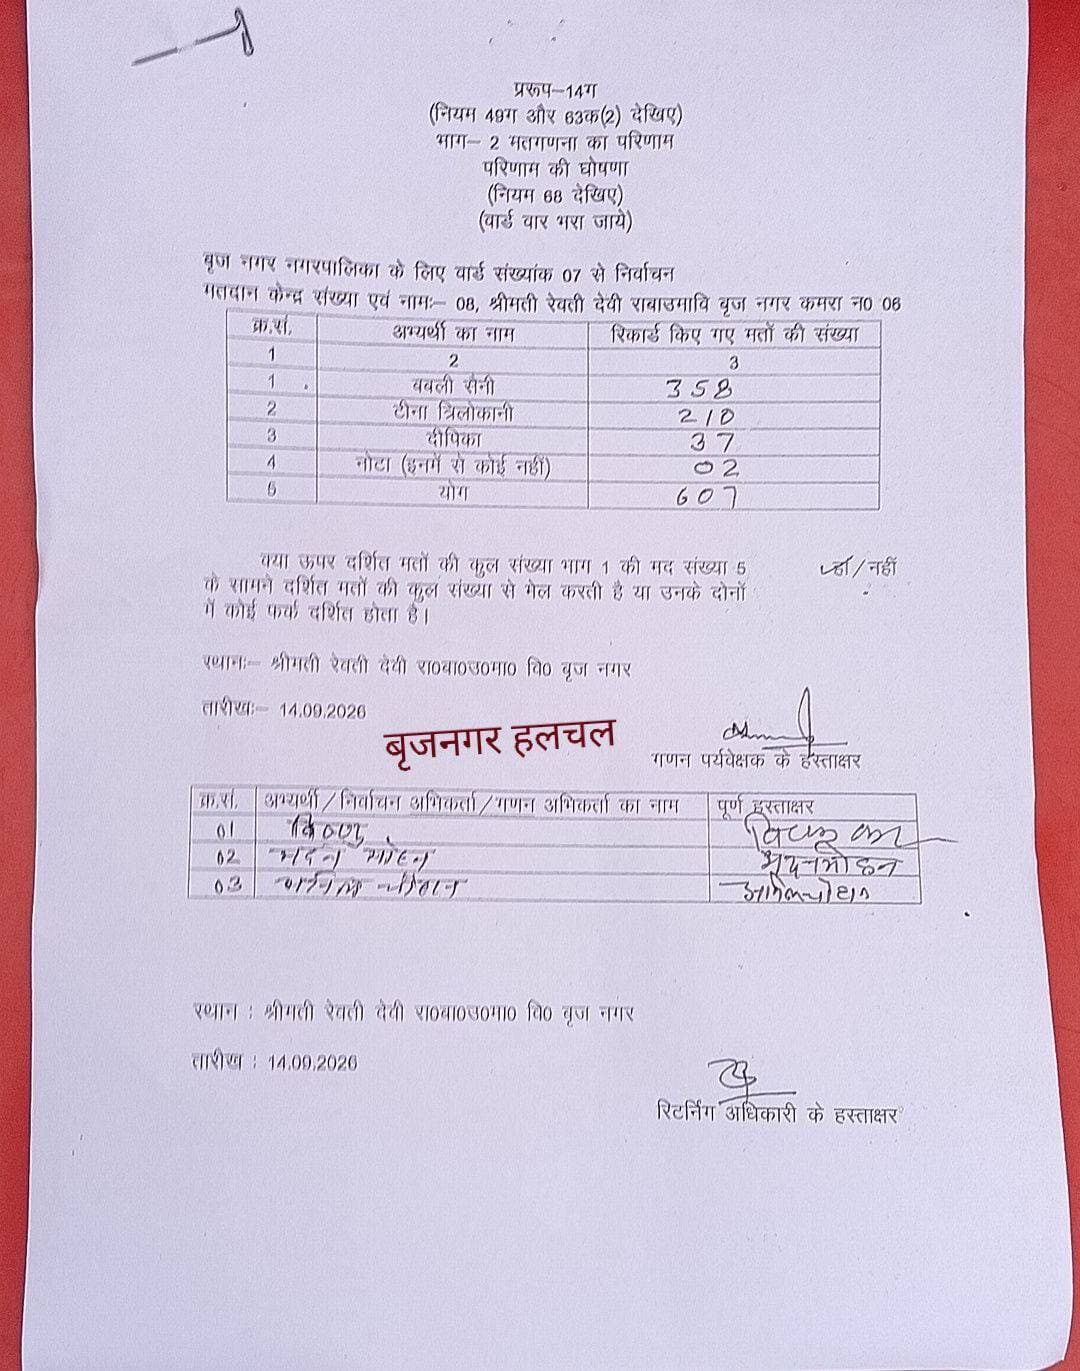 प्ररूप–14ग
(नियम 49ग और 63क(2) देखिए)
भाग– 2 मतगणना का परिणाम
परिणाम की घोषणा
(नियम 68 देखिए)
(वार्ड वार भरा जाये)
बृज नगर नगरपालिका के लिए वार्ड संख्यांक 07 से निर्वाचन
मतदान केन्द्र संख्या एवं नामः– 08, श्रीमती रेवती देवी राबाउमावि बृज नगर कमरा न0 06
क्र.सं. अभ्यर्थी का नाम रिकार्ड किए गए मतों की संख्या
1 2 3
1 बबली सैनी 358
2 टीना त्रिलोकानी 210
3 दीपिका 37
4 नोटा (इनमें से कोई नहीं) 02
5 योग 607
क्या ऊपर दर्शित मतों की कुल संख्या भाग 1 की मद संख्या 5 हॉ/नहीं
के सामने दर्शित मतों की कुल संख्या से मेल करती है या उनके दोनों
में कोई फर्क दर्शित होता है।
स्थानः– श्रीमती रेवती देवी रा0बा0उ0मा0 वि0 बृज नगर
तारीखः– 14.09.2026
बृजनगर हलचल
गणन पर्यवेक्षक के हस्ताक्षर
क्र.सं. अभ्यर्थी/निर्वाचन अभिकर्ता/गणन अभिकर्ता का नाम पूर्ण हस्ताक्षर
01
02 मदन मोहन मदनमोहन
03
स्थान : श्रीमती रेवती देवी रा0बा0उ0मा0 वि0 बृज नगर
तारीख : 14.09.2026
रिटर्निंग अधिकारी के हस्ताक्षर